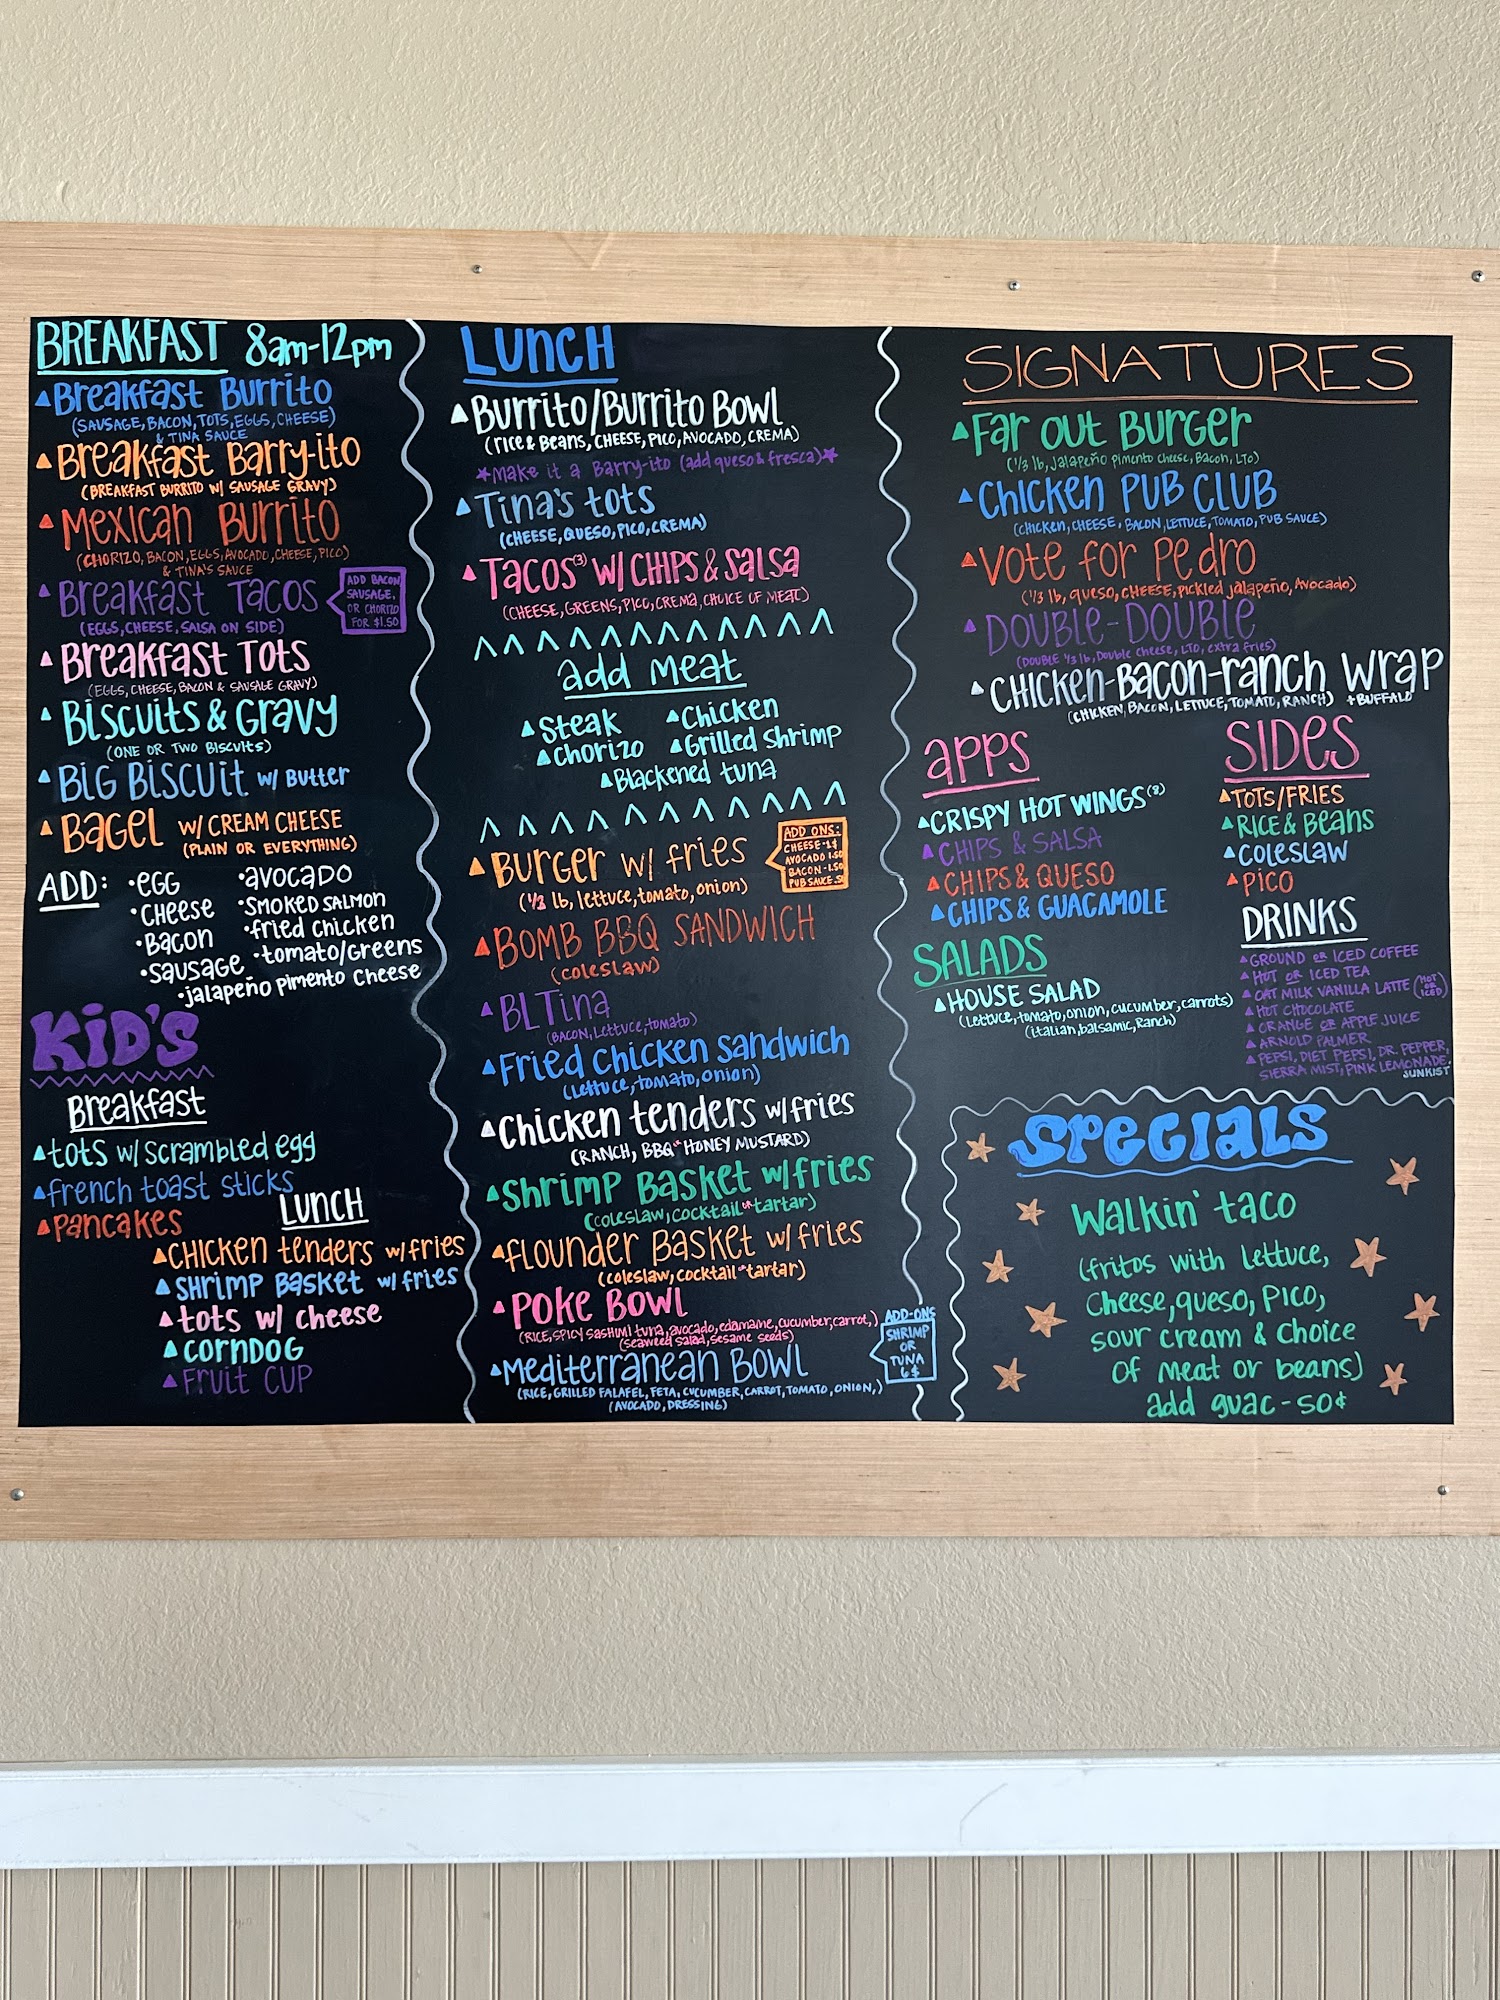 BREAKFAST 8am-12pm
Breakfast Burrito
(SAUSAGE, BACON, TOTS, EGGS, CHEESE)
& TINA SAUCE
Breakfast Barry-ito
(BREAKFAST BURRITO W/ SAUSAGE GRAVY)
Mexican Burrito
(CHORIZO, BACON, EGGS, AVOCADO, CHEESE, PICO)
& TINA'S SAUCE
Breakfast Tacos
(EGGS, CHEESE, SALSA ON SIDE)
ADD BACON,
SAUSAGE,
OR CHORIZO
FOR $1.50
Breakfast Tots
(EGGS, CHEESE, BACON & SAUSAGE GRAVY)
Biscuits & Gravy
(ONE OR TWO BISCUITS)
BIG BISCUIT w/ Butter
BAGEL W/ CREAM CHEESE
(PLAIN OR EVERYTHING)
ADD:
•EGG
•CHEESE
•Bacon
•Sausage
•AVOCADO
•SMOKED SALMON
•fried chicken
•tomato/Greens
•jalapeño pimento cheese
KID'S
Breakfast
tots w/ scrambled egg
french toast sticks
PANCAKES
LUNCH
CHICKEN tenders w/fries
SHRIMP BASKET w/fries
tots w/ cheese
CORNDOG
FRUIT CUP
LUNCH
Burrito/Burrito Bowl
(rice & Beans, CHEESE, PICO, AVOCADO, CREMA)
Make it a Barry-ito (add queso & fresca)
Tina's tots
(CHEESE, QUESO, PICO, CREMA)
TACOS (3) W/ CHIPS & SALSA
(CHEESE, GREENS, PICO, CREMA, CHOICE OF MEAT)
add meat
Steak
Chicken
Chorizo
Grilled Shrimp
Blackened tuna
BURGER w/ fries
(1/3 lb, lettuce, tomato, onion)
ADD ONS:
CHEESE-1$
AVOCADO 1.50
BACON-1.50
PUB SAUCE .5
BOMB BBQ SANDWICH
(coleslaw)
BLTina
(BACON, Lettuce, tomato)
Fried chicken sandwich
(lettuce, tomato, onion)
Chicken tenders w/fries
(RANCH, BBQ OR HONEY MUSTARD)
Shrimp Basket w/fries
(coleslaw, cocktail or tartar)
flounder Basket w/fries
(coleslaw, cocktail or tartar)
POKE BOWL
(RICE, SPICY SASHIMI tuna, avocado, edamame, cucumber, carrot,)
(seaweed salad, sesame seeds)
Mediterranean Bowl
(RICE, GRILLED FALAFEL, FETA, CUCUMBER, CARROT, TOMATO, ONION,)
(AVOCADO, DRESSING)
ADD-ONS
SHRIMP
OR
TUNA
6$
SIGNATURES
Far out Burger
(1/3 lb, jalapeño pimento cheese, Bacon, LTO)
Chicken PUB CLUB
(chicken, CHEESE, BACON, LETTUCE, TOMATO, PUB SAUCE)
Vote for Pedro
(1/3 lb, queso, CHEESE, pickled jalapeño, Avocado)
DOUBLE-DOUBLE
(DOUBLE 1/3 lb, Double cheese, LTO, extra fries)
CHICKEN-Bacon-ranch Wrap
(CHICKEN, BACON, LETTUCE, TOMATO, RANCH) +BUFFALO
apps
CRISPY HOT WINGS (8)
CHIPS & SALSA
CHIPS & QUESO
CHIPS & GUACAMOLE
SIDES
TOTS/FRIES
RICE & Beans
coleslaw
PICO
SALADS
HOUSE SALAD
(lettuce, tomato, onion, cucumber, carrots)
(italian, balsamic, Ranch)
DRINKS
GROUND or ICED COFFEE
HOT or ICED TEA
OAT MILK VANILLA LATTE (HOT or ICED)
HOT CHOCOLATE
ORANGE or APPLE JUICE
ARNOLD PALMER
PEPSI, DIET PEPSI, DR. PEPPER,
SIERRA MIST, PINK LEMONADE,
SUNKIST
SPECIALS
Walkin' taco
(fritos with lettuce,
Cheese, queso, PICO,
sour cream & choice
of meat or beans)
add guac - 50¢